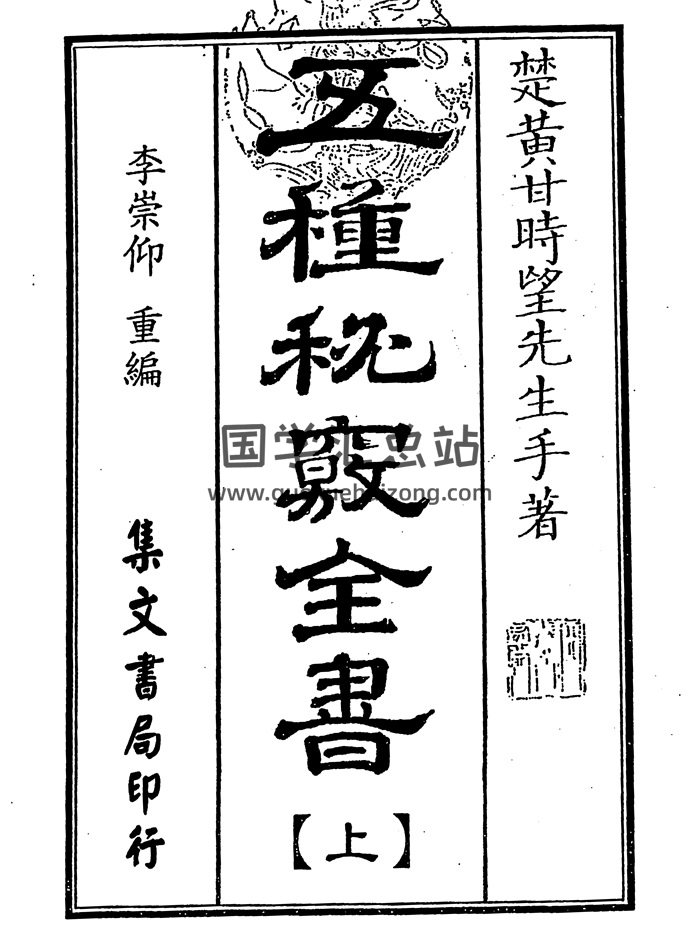 楚黃甘時望先生手著
五種秘竅全書
【上】
李崇仰 重編
集文書局印行
国学汇总站
www.guoxuehuizong.com